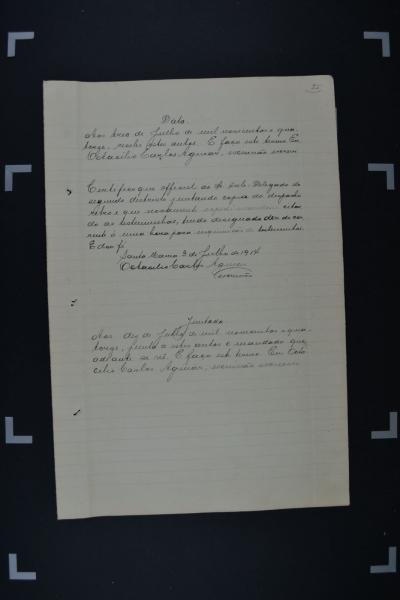 25
Data.
Aos tres de Julho de mil novecentos e qua-
torze, recebi estes autos. E faço este termo. Eu
Octacilio Carlos Aguiar, escrivão escrevi
Certifico que officiei ao Sr. Sub. Delegado do
segundo districto juntando copia do despacho
retro e que novamente citan
do as testemunhas, sendo designado dez do cor
rente á uma hora para inquirição de testemunhas.
E dou fé
Santa Maria 3 de Julho de 1914
Octacilio Carlos Aguiar
Escrivão
Juntada
Aos dez de Julho de mil novecentos e qua-
torze, junto a estes autos o mandado que
adiante se vê. E faço este termo. Eu Octa
cilio Carlos Aguiar, escrivão escrevi